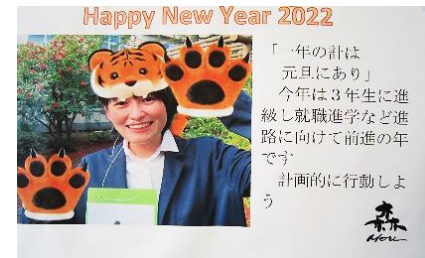 Happy New Year 2022
「一年の計は
元旦にあり」
今年は３年生に進
級し就職進学など進
路に向けて前進の年
です
計画的に行動しよ
う
森
Mori